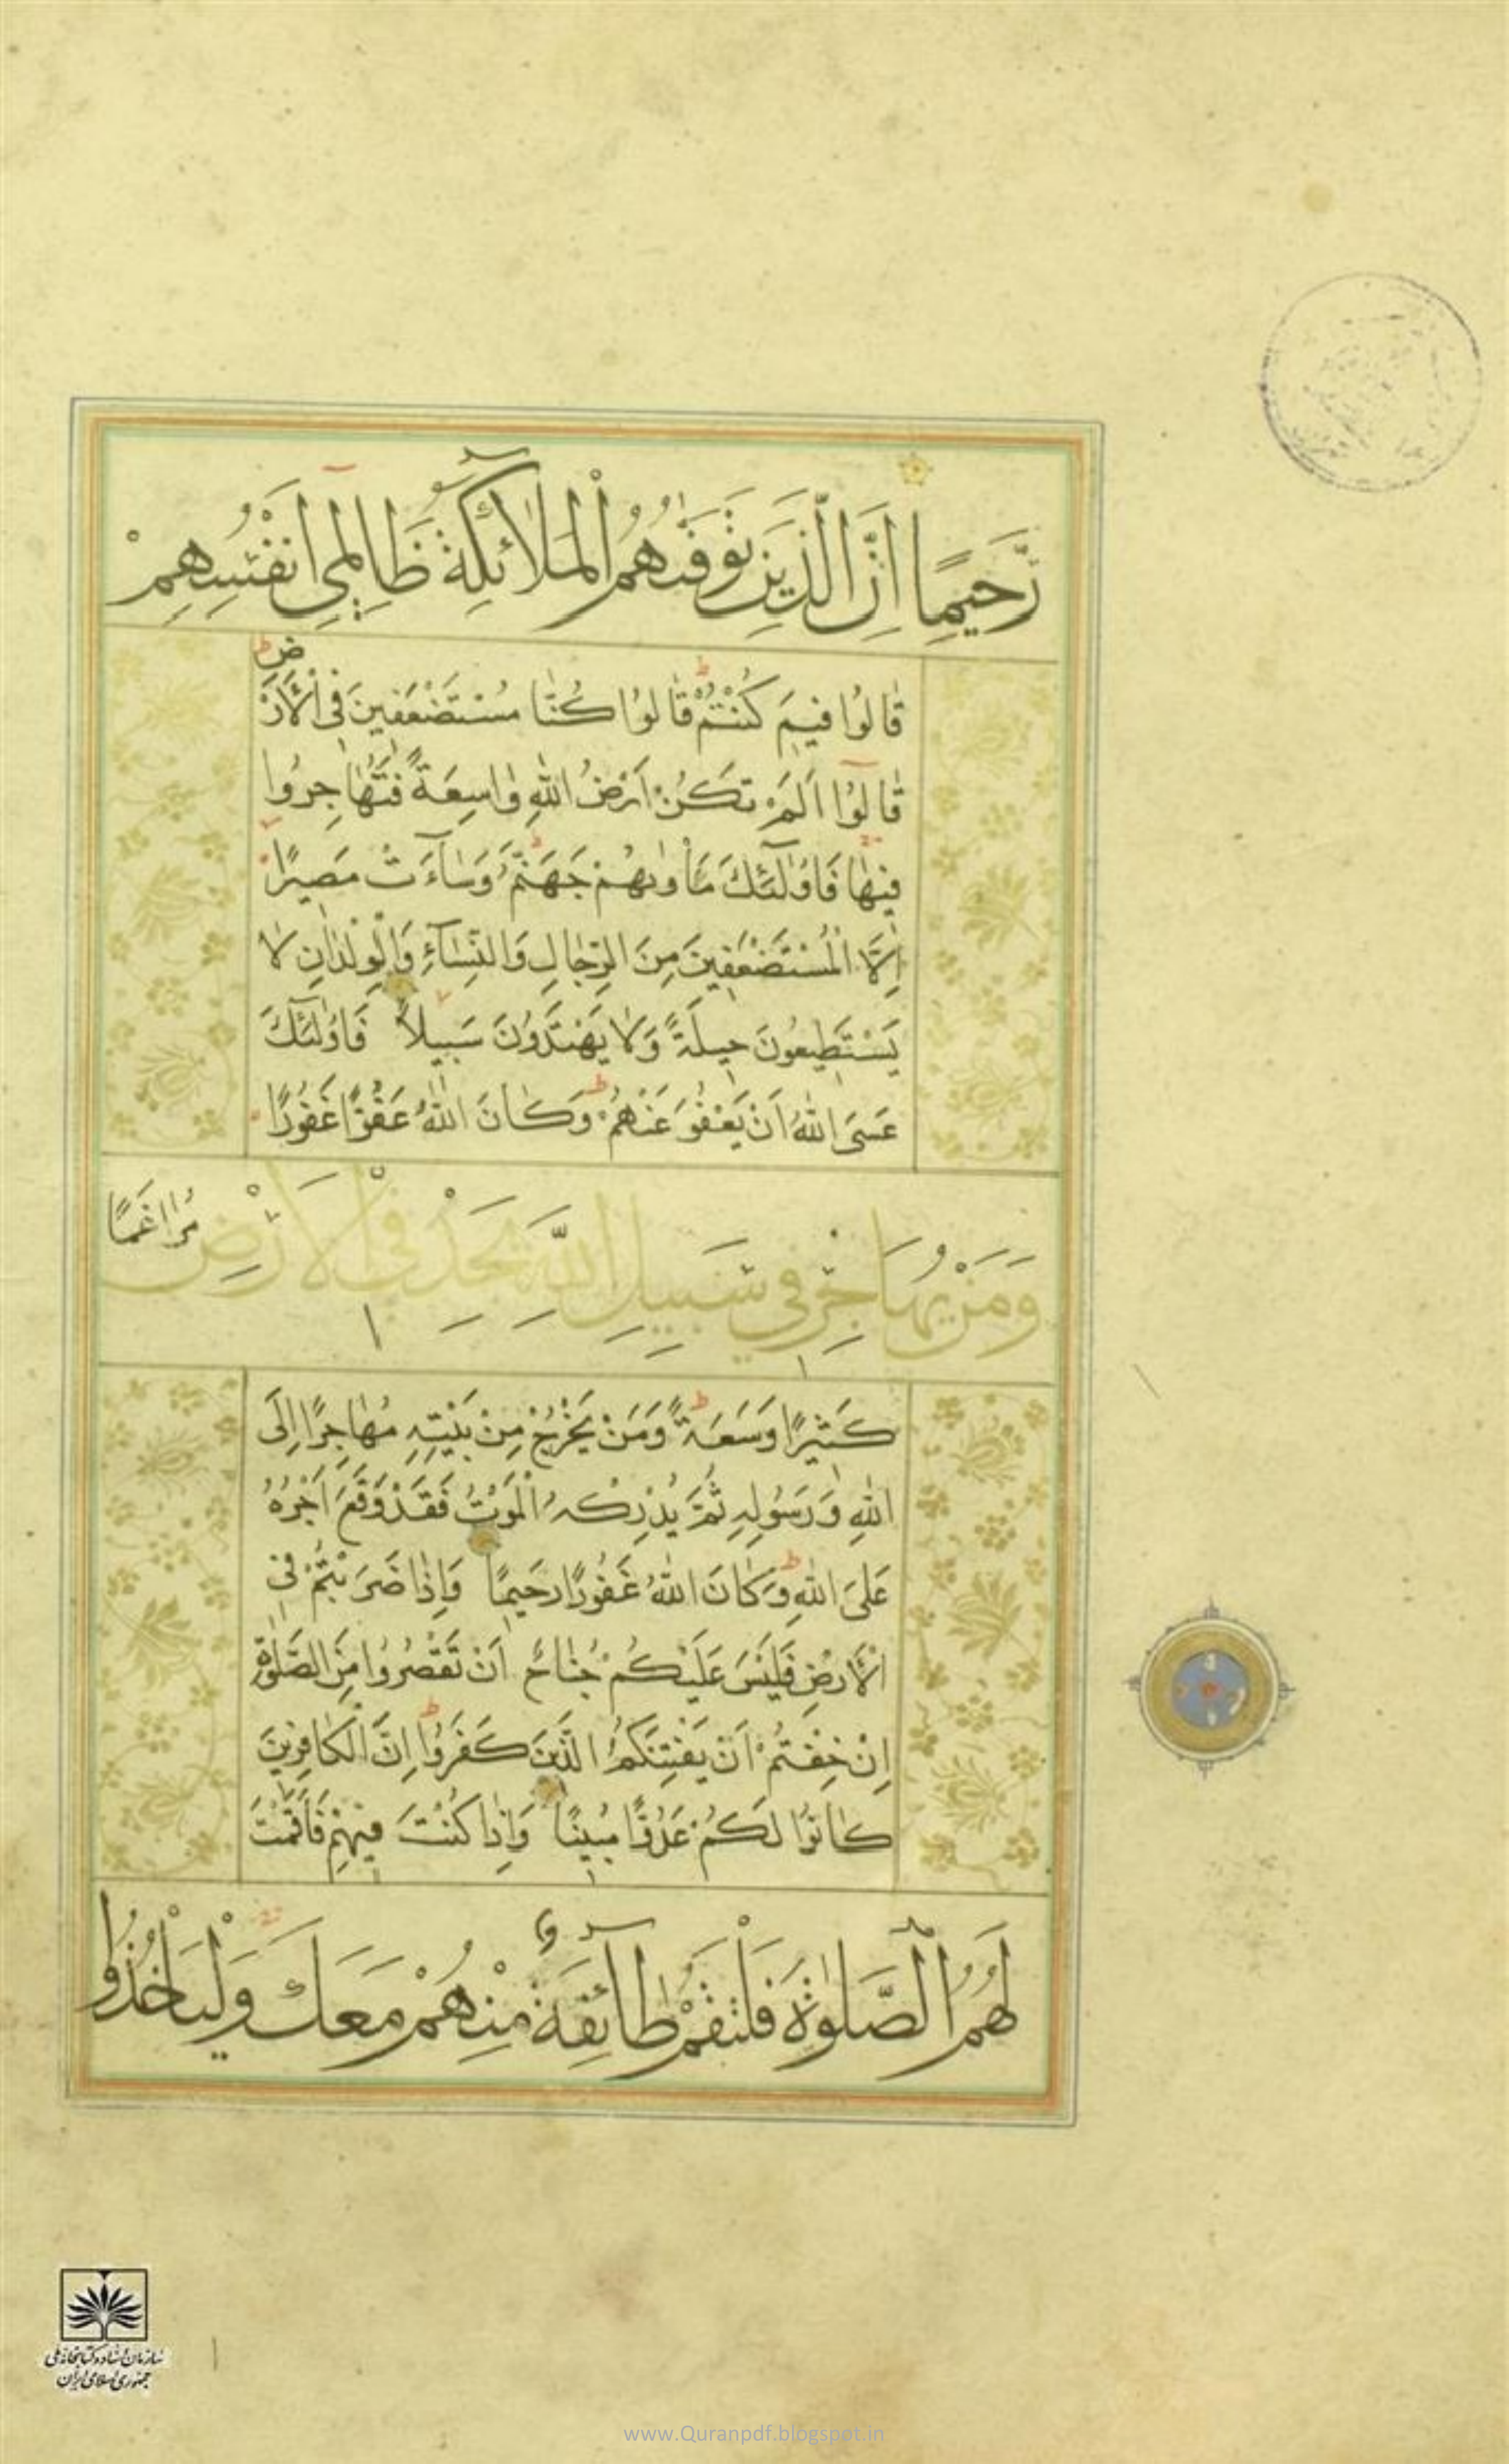 رَّحِيمًا اِنَّ الَّذِينَ تَوَفّٰىهُمُ الْمَلٰٓائِكَةُ ظَالِمِٓي اَنْفُسِهِمْ
قَالُوا فِيمَ كُنْتُمْ قَالُوا كُنَّا مُسْتَضْعَفِينَ فِي الْاَرْضِ
قَالُوٓا اَلَمْ تَكُنْ اَرْضُ اللّٰهِ وَاسِعَةً فَتُهَاجِرُوا
فِيهَا فَاُولٰٓئِكَ مَأْوٰىهُمْ جَهَنَّمُ وَسَآءَتْ مَصِيرًا
اِلَّا الْمُسْتَضْعَفِينَ مِنَ الرِّجَالِ وَالنِّسَآءِ وَالْوِلْدَانِ لَا
يَسْتَطِيعُونَ حِيلَةً وَلَا يَهْتَدُونَ سَبِيلًا فَاُولٰٓئِكَ
عَسَى اللّٰهُ اَنْ يَعْفُوَ عَنْهُمْ وَكَانَ اللّٰهُ عَفُوًّا غَفُورًا
وَمَنْ يُهَاجِرْ فِي سَبِيلِ اللّٰهِ يَجِدْ فِي الْاَرْضِ مُرَاغَمًا
كَثِيرًا وَسَعَةً وَمَنْ يَخْرُجْ مِنْ بَيْتِهِ مُهَاجِرًا اِلَى
اللّٰهِ وَرَسُولِهِ ثُمَّ يُدْرِكْهُ الْمَوْتُ فَقَدْ وَقَعَ اَجْرُهُ
عَلَى اللّٰهِ وَكَانَ اللّٰهُ غَفُورًا رَحِيمًا وَاِذَا ضَرَبْتُمْ فِي
الْاَرْضِ فَلَيْسَ عَلَيْكُمْ جُنَاحٌ اَنْ تَقْصُرُوا مِنَ الصَّلٰوةِ
اِنْ خِفْتُمْ اَنْ يَفْتِنَكُمُ الَّذِينَ كَفَرُوا اِنَّ الْكَافِرِينَ
كَانُوا لَكُمْ عَدُوًّا مُبِينًا وَاِذَا كُنْتَ فِيهِمْ فَاَقَمْتَ
لَهُمُ الصَّلٰوةَ فَلْتَقُمْ طَآئِفَةٌ مِنْهُمْ مَعَكَ وَلْيَأْخُذُوا
سازمان اسناد و کتابخانه ملی
جمهوری اسلامی ایران
www.Quranpdf.blogspot.in